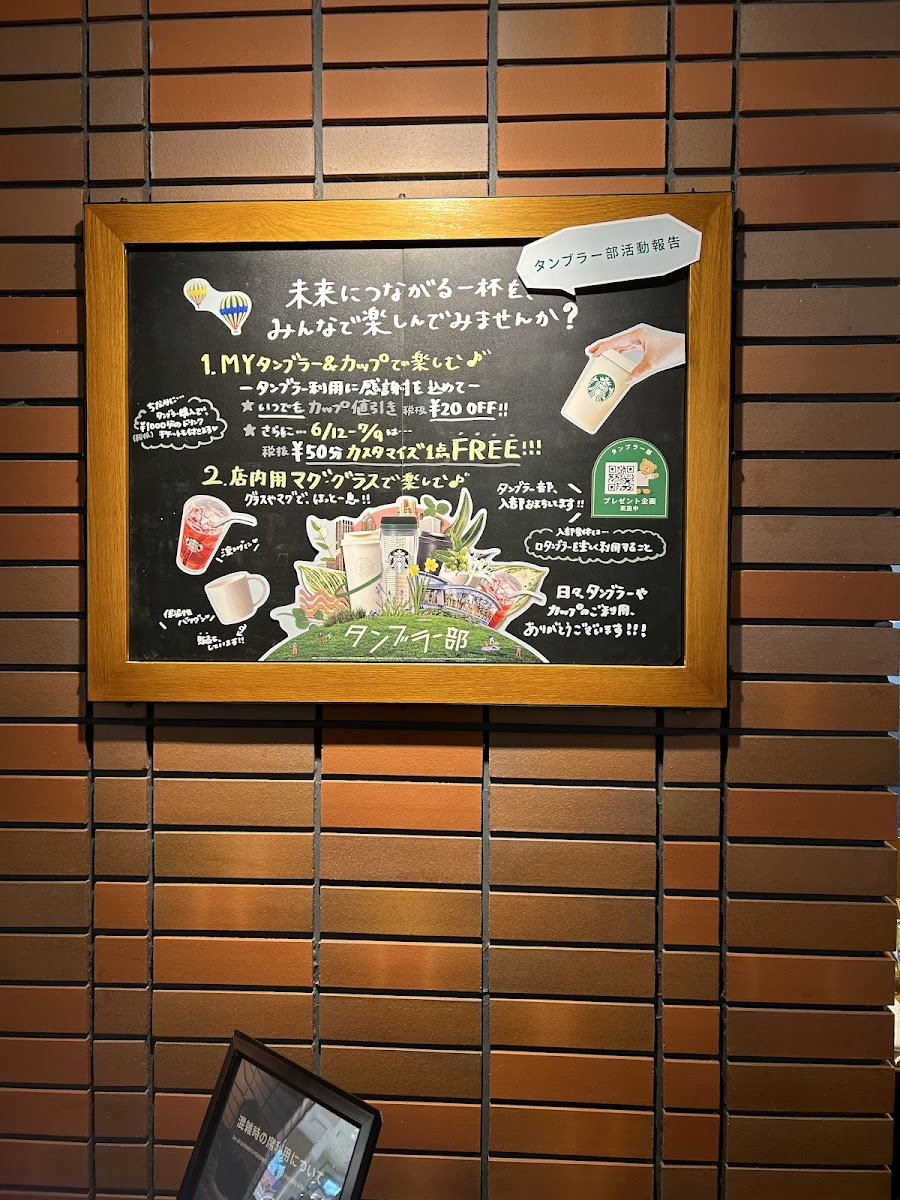 タンブラー部活動報告
未来につながる一杯を、
みんなで楽しんでみませんか?
1. MYタンブラー&カップで楽しむ♪
ータンブラー利用に感謝を込めてー
★いつでも カップ値引き 税抜 ¥20 OFF!!
★さらに… 6/12-7/9は…
税抜 ¥50分 カスタマイズ1点 FREE!!!
ちなみに…
タンブラー購入で、
¥1000分のドリンク
(税抜) チケットも付きます♥
2. 店内用マグ・グラスで楽しむ♪
グラスやマグで、ほっと一息!!
タンブラー部
プレゼント企画
実施中
タンブラー部、
入部おまちしてます!!
入部要件は…
ロタンブラーを楽しく利用すること
保温性
バツグン
販売も
しています!!
タンブラー部
日々、タンブラーや
カップのご利用、
ありがとうございます!!!
混雑時の席利用について